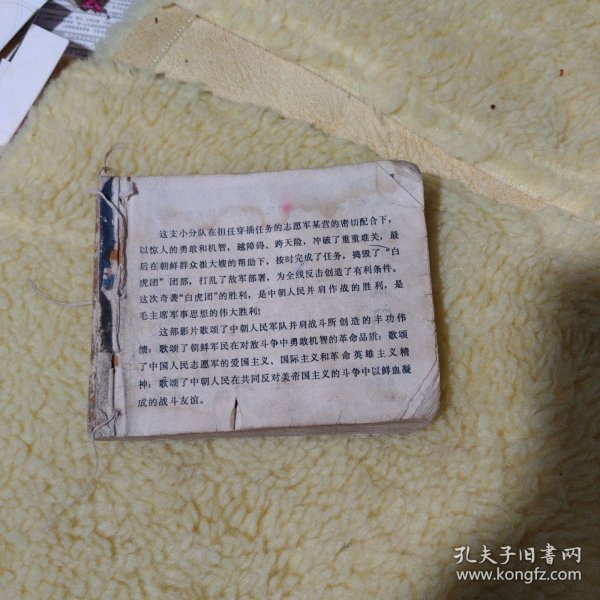 这支小分队在担任穿插任务的志愿军某营的密切配合下，
以惊人的勇敢和机智，越障碍、跨天险，冲破了重重难关，最
后在朝鲜群众崔大嫂的帮助下，按时完成了任务，捣毁了“白
虎团”团部，打乱了敌军部署，为全线反击创造了有利条件。
这次奇袭“白虎团”的胜利，是中朝人民并肩作战的胜利，是
毛主席军事思想的伟大胜利！
这部影片歌颂了中朝人民军队并肩战斗所创造的丰功伟
绩；歌颂了朝鲜军民在对敌斗争中勇敢机智的革命品质；歌颂
了中国人民志愿军的爱国主义、国际主义和革命英雄主义精
神；歌颂了中朝人民在共同反对美帝国主义的斗争中以鲜血凝
成的战斗友谊。
孔夫子旧书网
www.kongfz.com